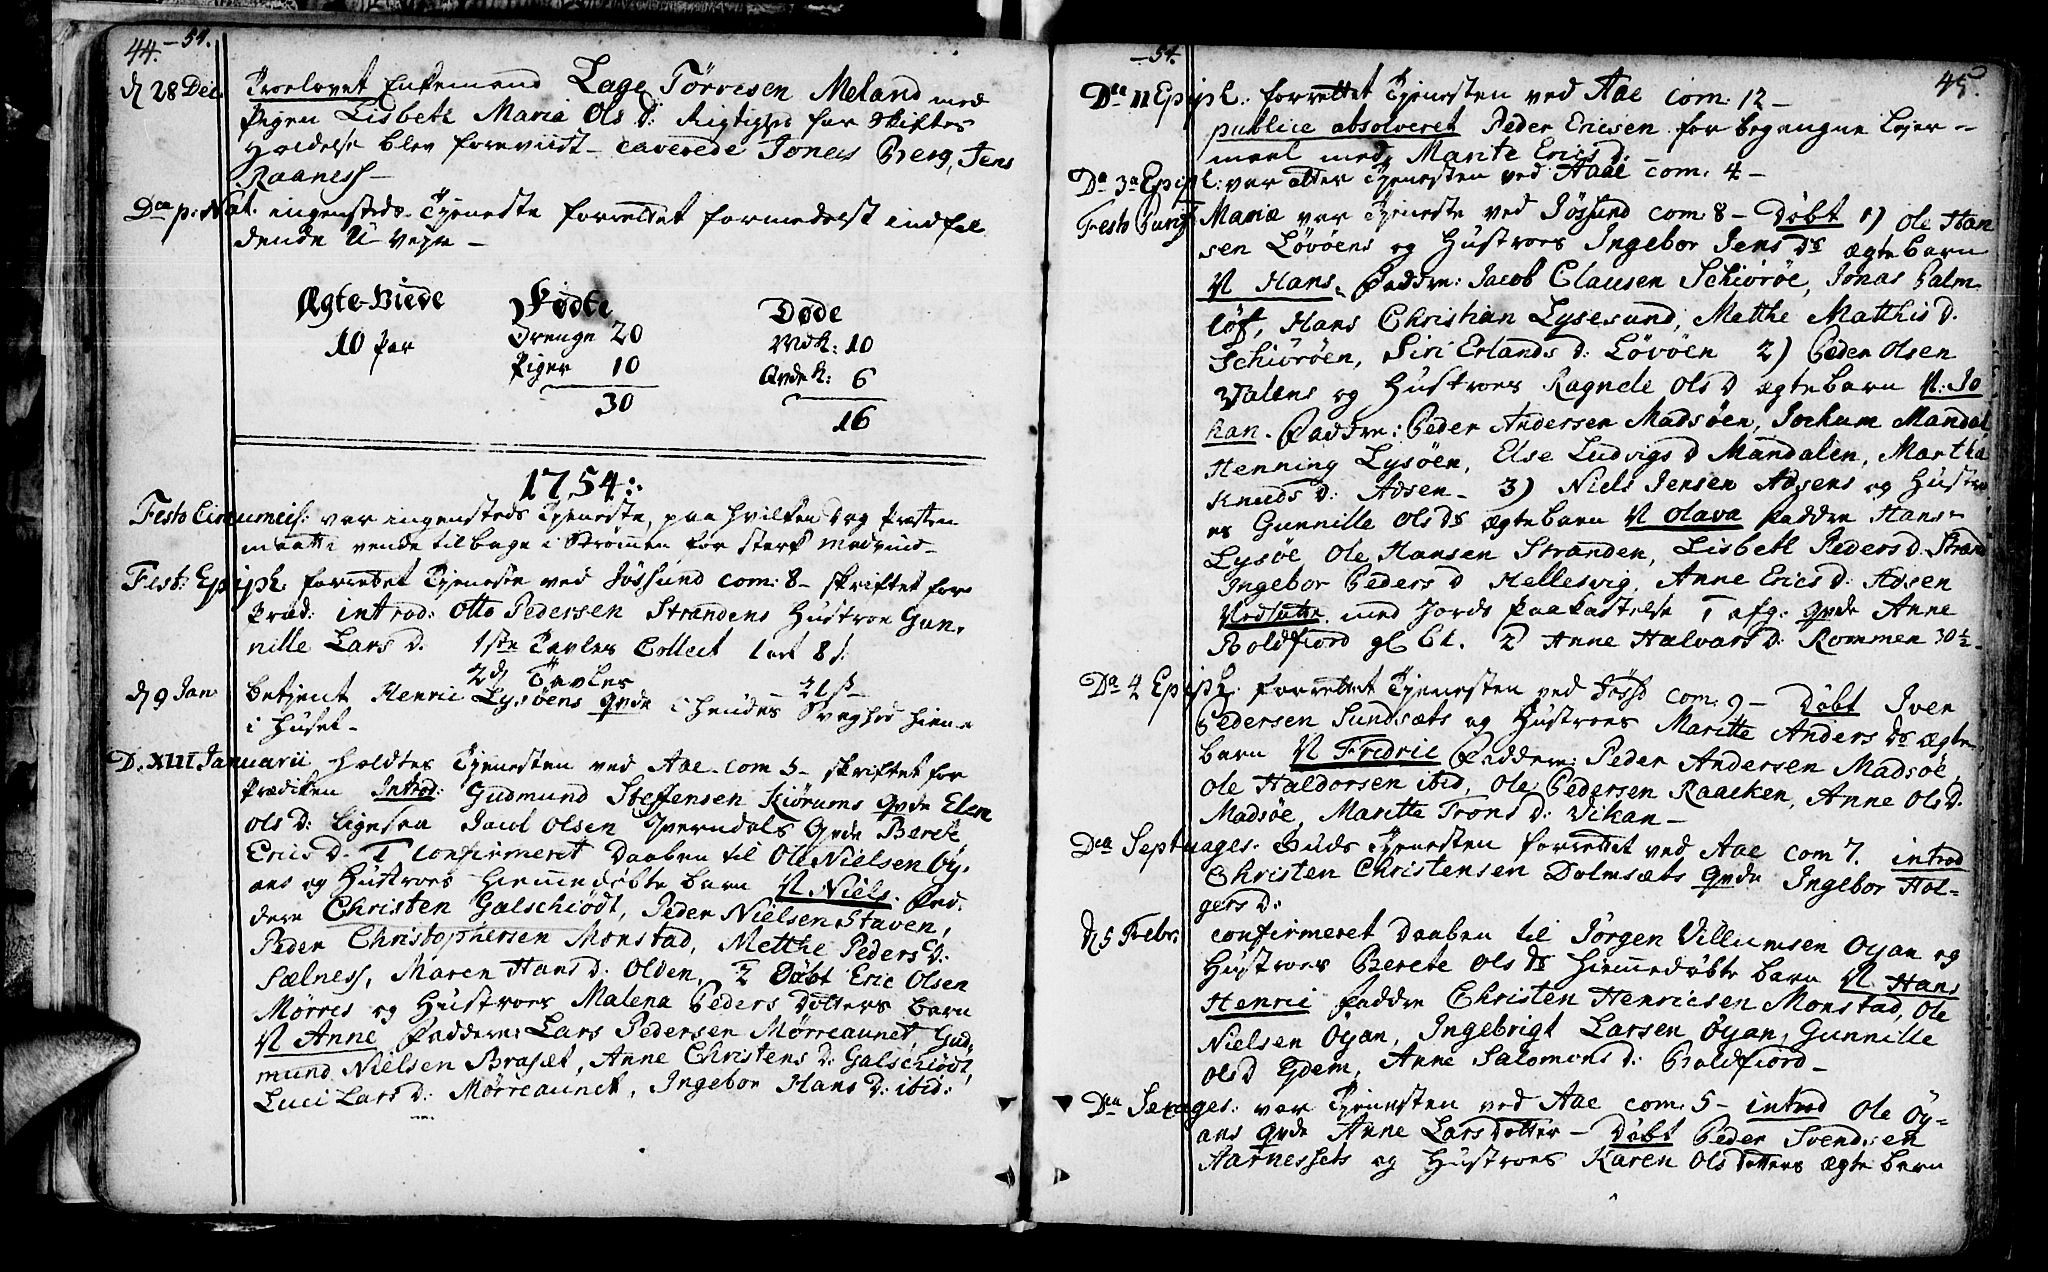 44. -54.
d 28 Dec. Troelovet Enkemand Lage Tørresen Meland med
Pigen Lisbeth Maria Ols D: Rigtighed for Skiftes
Holdelse blev foreviist - caverede Jonas Berg, Jens
Raaness -
Dca p. Nat. ingensteds Tjeneste forrettet formedelst indfal
dende U-vejr -
Ægte-Viede Fødte Døde
10 Par Drenge 20 Mdk: 10
Piger 10 Qvdek: 6
30 16
1754:
Festo Circumcis: var ingensteds Tjeneste, paa hvilken Dag Præsten
maatte vende tilbage i Strømmen for sterk Modvind -
Fest: Epiph. forrettet Tjeneste ved Jøssund com: 8 - skriftet for
Præd: introd: Otto Pedersen Strandens Hustroe Gun,
nille Lars D. 1ste Tavles Collect 1 ort 8 s.
2d Tavles 21 s -
d 9 Jan: betjent Henric Lysøens Qvde i hendes Svaghed hiemme
i Huset -
D. XIII Januarii holdtes Tjenesten ved Aae com 5 - skriftet for
Prædiken Introd: Gudmund Steffensen Kiørums Qvde Elen
Ols D: ligesaa Jacob Olsen Qvde Berete
Erics D. 1 Confirmeret Daaben til Ole Nielsen Oy,
ans og Hustroes hiemmedøbte barn N Niels. Fad,
dere Christen Galschiødt, Peder Nielsen Staven,
Peder Christophersen Monstad, Metthe Peders D:
Selness, Maren Hans D: Olden, 2 Døbt Eric Olsen
Mørres og Hustroes Malena Peders Dotters barn
N Anne Faddere: Lars Pedersen Mørreaunet, Gud,
mund Nielsen Brasæt, Anne Christens D: Galschiødt,
Luci Lars D: Mørreaunet, Ingebor Hans D: ibid:
-54. 45.
Dca II Epiph: forrettet Tjenesten ved Aae com: 12 -
publice absolveret Peder Ericsen for begangne Lejer-
maal med Marite Erics D.
Da 3a Epiph: var atter Tjenesten ved Aae com: 4 -
Festo Purif Mariæ var Tjeneste ved Jøssund com: 8 - Døbt 1) Ole Han
sen Løvøens og Hustroes Ingebor Jens Ds ægte barn
N Hans. Faddre: Jacob Clausen Schiørøe, Jonas Palm
løf, Hans Christian Lysesund, Metthe Matthis D.
Schiørøen, Siri Erlands D: Løvøen 2) Peder Olsen
Dalens og Hustroes Ragnele Ols D ægte barn N: Jo
han. Faddre: Peder Andersen Madsøen, Jochum Mandal
Henning Lysøen, Else Ludvigs D Mandalen, Martha
Knuds D: Adsen - 3) Niels Jensen Adsens og Hustro
es Gunnille Ols Ds ægte barn N Olava Faddre Hans
Lysøe Ole Hansen Stranden, Lisbeth Peders D. Strand
Ingebor Peders D Hellesvig, Anne Erics D: Adsen
Nedsatte med Jords Paakastelse 1 afg: Qvde Anne
Boldfiord gl 61. 2 Anne Halvars D: Rommen 30 1/2 -
Da 4 Epiph. forrettet Tjenesten ved Jøssd com: 9 - Døbt Iver
Pedersen Sundsæts og Hustroes Maritte Anders Ds ægte
barn N Fredric Faddere: Peder Andersen Madsøe,
Ole Haldorsen ibid, Ole Pedersen Raacken, Anne Ols D.
Madsøe, Maritte Trons D: Vikan -
Dca Septuages. Guds Tjenesten forrettet ved Aae com 7. introd
Christen Christensen Dolmsæts Qvde Ingebor Hol-
gers D:
d 5 Febr: confirmeret Daaben til Jørgen Villumsen Oyan og
Hustroes Berete Ols Ds hiemmedøbte barn N Hans
Henric Faddre Christen Henricsen Monstad, Ole
Nielsen Oyan, Ingebrigt Larsen Øyan, Gunnille
Ols D Eydem, Anne Salomons D: Boldfiord -
Dca Sexages: var Tjenesten ved Aae com: 5 - introd Ole Øy-
ans Qvde Anne Lars Dotter - Døbt Peder Svendsen
Aarnessets og Hustroes Karen Ols Dotters ægte barn